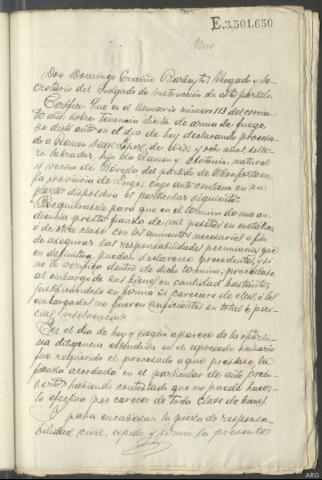 E.3.501.650
Don Domingo Abogado y Se-
cretario del Juzgado de instrucción de este partido.
Certifico: Que en el Sumario número 113 del corrien-
te año sobre tenencia ilícita de arma de fuego,
se dictó auto en el día de hoy declarando procesa-
do a Ramón López, de diez y ocho años, solte-
ro labrador, hijo de Ramón y natural
y vecino de del partido de Monforte en
la provincia de Lugo, cuyo auto contiene en su
parte dispositiva el particular siguiente:
Requiérasele para que en el termino de una au-
diencia preste fianza de mil pesetas en metálico,
ó de otra clase con los aumentos necesarios a fin
de asegurar las responsabilidades pecuniarias que
en definitiva puedan declararse procedentes, y si no
lo verifica dentro de dicho termino, procédase
al embargo de sus bienes en cantidad bastante,
justificándose en forma si careciere de ellos ó los
embargados no fueren suficientes su total ó par-
cial insolvencia.
En el día de hoy y según aparece de la oportu-
na diligencia extendida en el expresado sumario
fue requerido el procesado a que prestase la
fianza acordada en el particular de auto pre-
inserto, habiendo contestado que no puede hacer-
lo efectivo por carecer de toda clase de bienes.
Y para encabezar la pieza de responsa-
bilidad civil, expido y firmo la presente
ARG